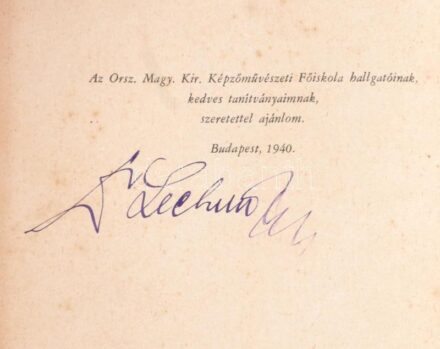 Az Orsz. Magy. Kir. Képzőművészeti Főiskola hallgatóinak,
kedves tanítványaimnak,
szeretettel ajánlom.
Budapest, 1940.
Dr Lechner